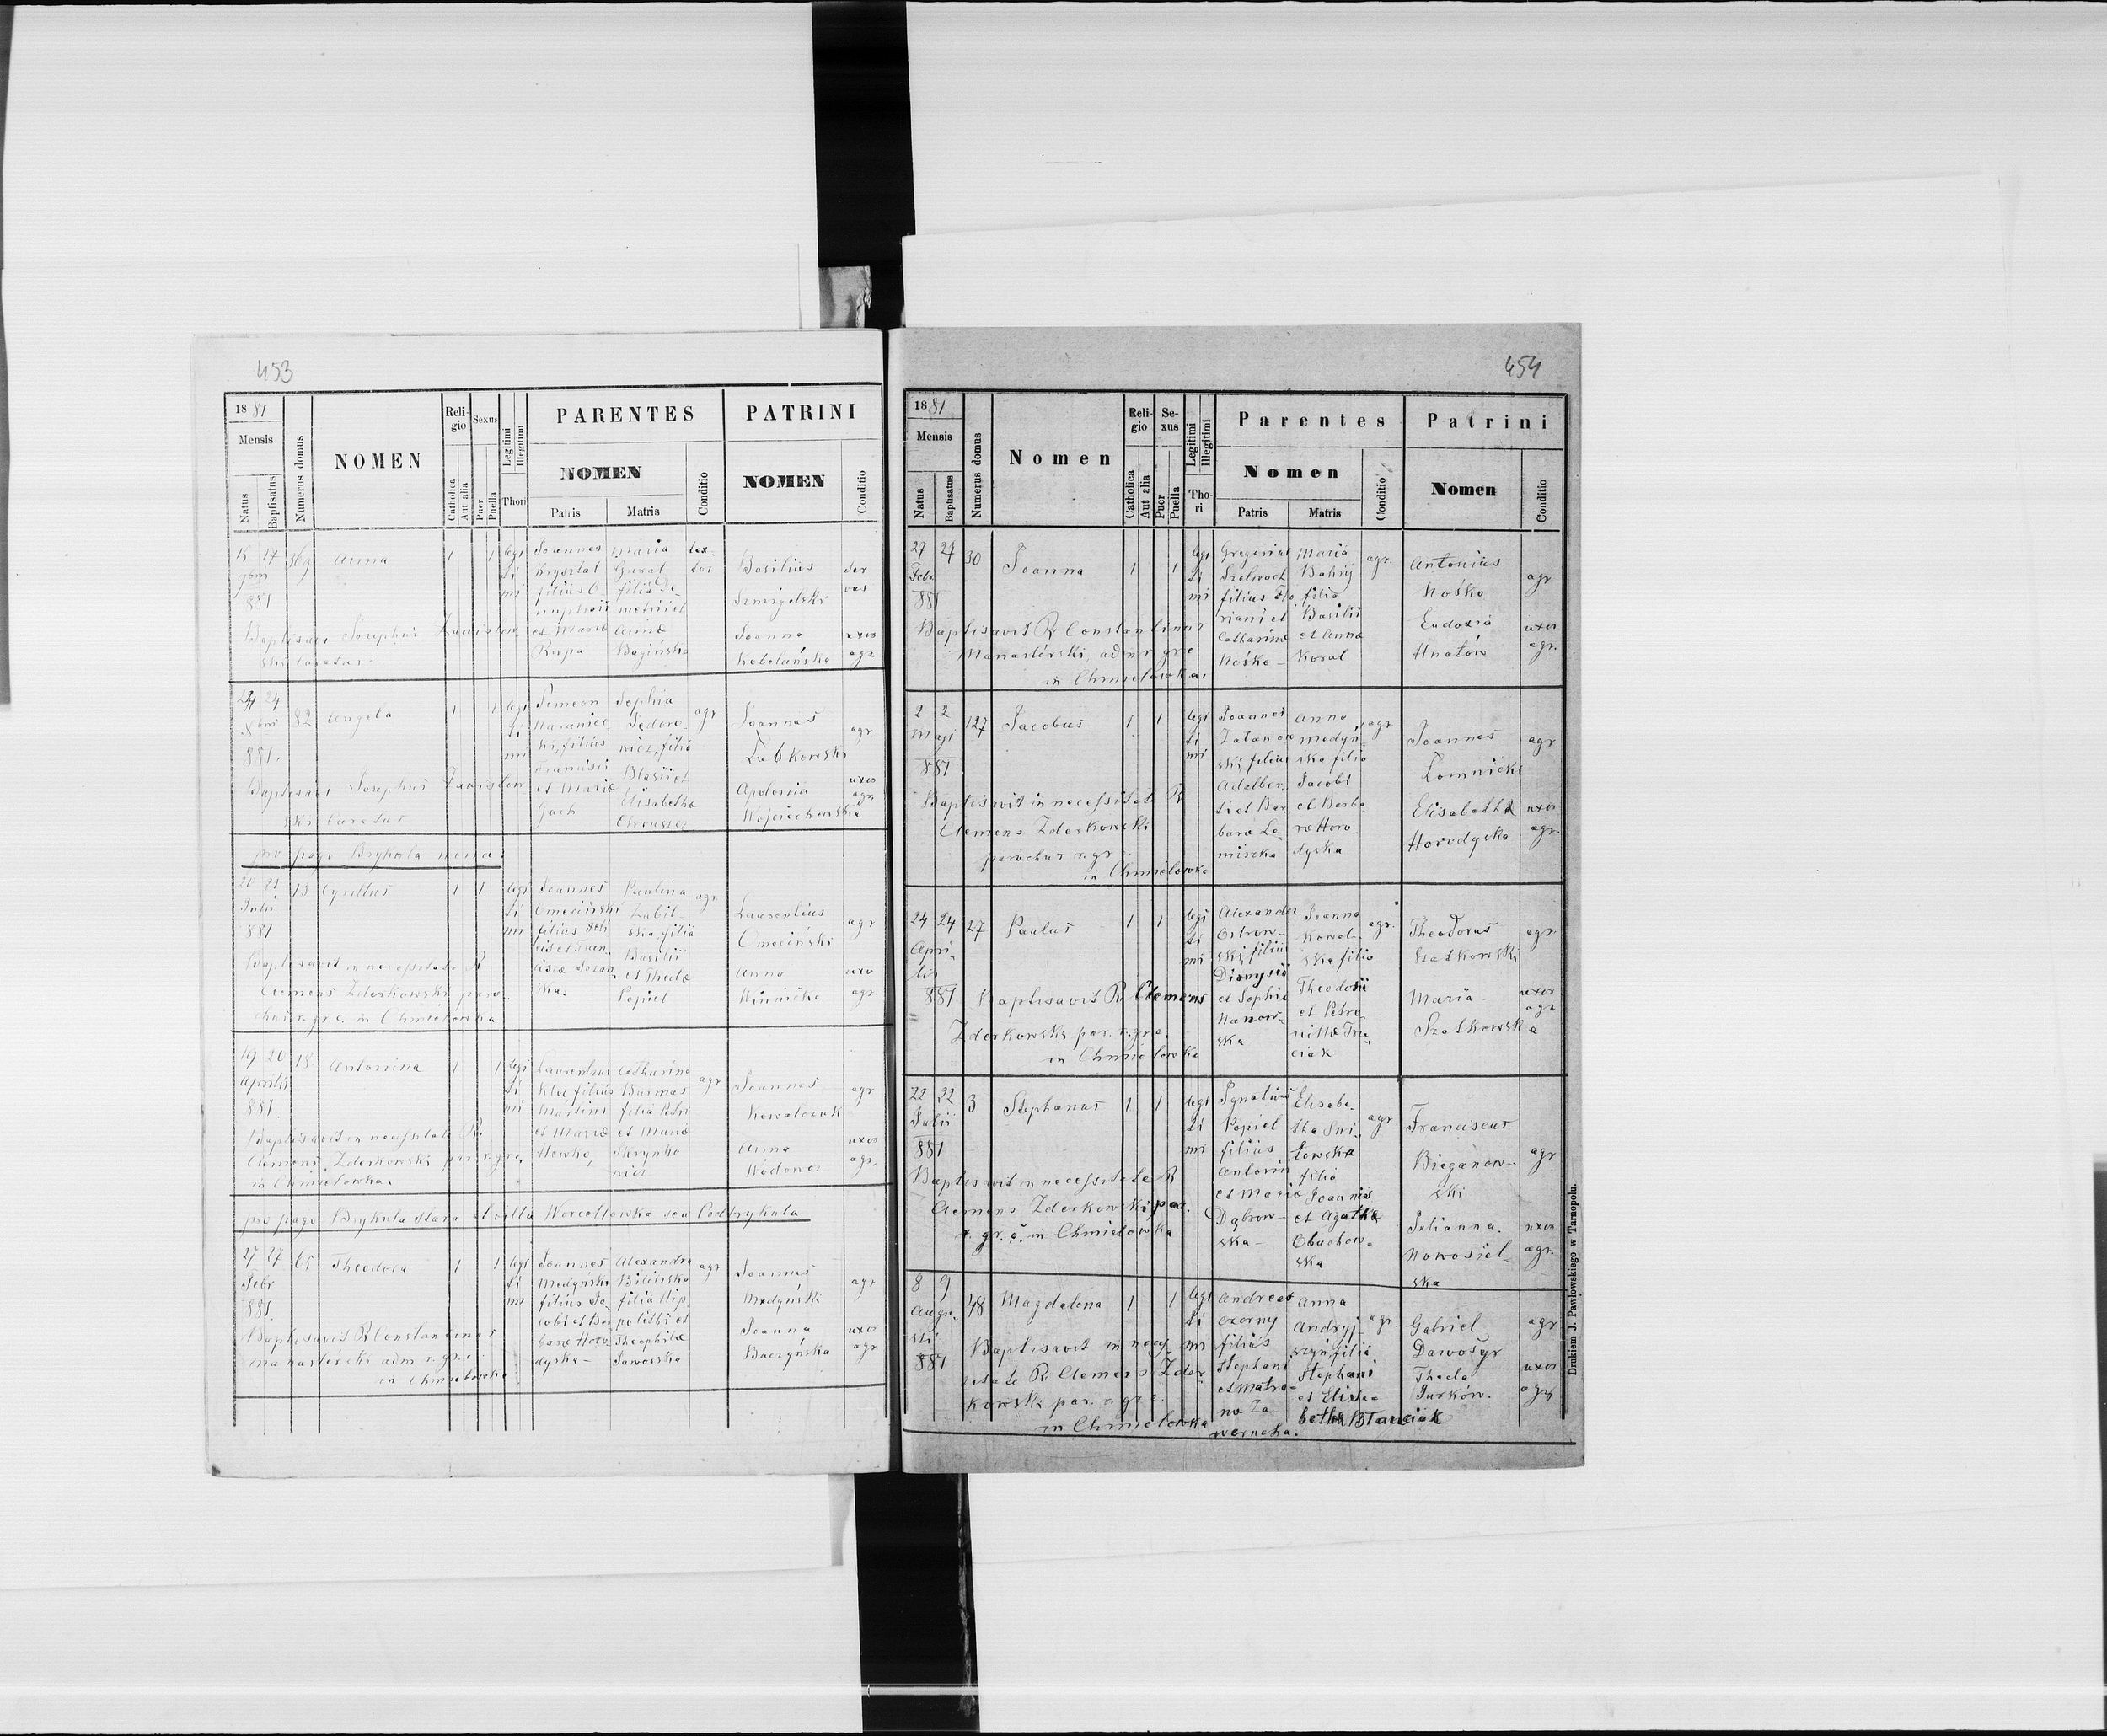 453
1881
Mensis
Natus
Baptisatus
Numerus domus
NOMEN
Religio
Catholica
Aut alia
Sexus
Puer
Puella
Legitimi
Illegitimi
Thori
PARENTES
NOMEN
Patris
Matris
Conditio
PATRINI
NOMEN
Conditio
17
881
Anna
1
1
legi
ti
mi
Joannes
Krysztal
filius O-
nuphrii
et Mariæ
Maria
filia De-
metrii et
Annæ
Bagińska
Basilius
Joanna
uxor
agr.
Baptisavi Josephus
24 24
881.
82
Angela
1
1
legi
ti
mi
Simeon
filius
Francisci
et Mariæ
Gach
Sophia
Fedoro-
wicz, filia
Blasii et
Elisabethæ
agr
Joannes
Lubkowski
agr
Apolonia
Wojciechowska
uxor
agr.
Baptisavi Josephus
pro pago Brykula nova
20 21
Julii
881
13
Cyrillus
1
1
legi
ti
mi
Joannes
Omeciński
filius
Paulina
filia
Basilii
et Theclæ
Popiel
agr
Laurentius
Omeciński
agr
Anna
Winnicka
uxo
agr.
Baptisavit in necessitate R
Clemens Zderkowski paro-
chus r. gr. c. in Chmielówka
19 20
Aprilis
881.
18
Antonina
1
1
legi
ti
mi
Laurentius
filius
Martini
et Mariæ
Catharina
Burmas
filia Petri
et Mariæ
Skrynko
wicz
agr
Joannes
Kowalczuk
agr
Anna
Wodowoz
uxor
agr.
Baptisavit in necessitate R.
Clemens Zderkowski par. r. gr. c.
in Chmielówka.
pro pago Brykula stara et villa Worcellowka seu Podbrykula
27 27
Febr
881.
65
Theodora
1
1
legi
ti
mi
Joannes
Medyński
filius Ja-
cobi et Bar
baræ Horo-
dyska-
Alexandra
Bilińska
filia Hip-
politi et
Theophilæ
Jaworska
agr
Joannes
Medyński
agr
Joanna
Baczyńska
uxor
agr
Baptisavit R Constantinus
Manasterski adm r. gr. c.
in Chmielówka
454
1881
Mensis
Natus
Baptisatus
Numerus domus
Nomen
Religio
Catholica
Aut alia
Sexus
Puer
Puella
Legitimi
Illegitimi
Thori
Parentes
Nomen
Patris
Matris
Conditio
Patrini
Nomen
Conditio
27 27
Febr.
881
30
Joanna
1
1
legi
ti
mi
Gregorius
filius Flo
riani et
Catharinæ
Nośko-
Maria
Bahrij
filia
Basilii
et Annæ
Koral
agr.
Antonius
Nośko
agr
Eudoxia
Hnatów
uxor
agr.
Baptisavit R Constantinus
Manasterski, adm r gr c
in Chmielówka.
2 2
Maji
881
127
Jacobus
1
1
legi
ti
mi
Joannes
ski, filius
Adalber-
ti et Bar-
baræ Le-
miszka
Anna
Medyń-
ska filia
Jacobi
et Barba-
ræ Horo-
dyska
agr.
Joannes
Łomnicki
agr
Elisabetha
Horodyska
uxor
agr.
Baptisavit in necessitate R
Clemens Zderkowski
parochus r. gr
in Chmielówka
24 24
Apri-
lis
881
27
Paulus
1
1
legi
ti
mi
Alexander
Ostrow-
ski, filius
Dionysii
et Sophiæ
Nanow-
ska
Joanna
Kowal-
ska filia
Theodosii
et Petro-
nillæ Trze-
ciak
agr.
Theodorus
Szatkowski
agr.
Maria
Szatkowska
uxor
agr.
Baptisavit R Clemens
Zderkowski par. r. gr. c.
in Chmielówka
22 22
Julii
881
3
Stephanus
1
1
legi
ti
mi
Ignatius
Popiel
filius
Antonii
et Mariæ
Dąbrow-
ska-
Elisabe-
tha Sni-
towska
filia
Joannis
et Agathæ
Obuchow-
ska
agr
Franciscus
Bieganow-
ski
agr
Julianna
Nowosiel-
ska
uxor
agr.
Baptisavit in necessitate R
Clemens Zderkowski par.
r. gr. c. in Chmielówka
8 9
Augu-
sti
881
48
Magdalena
1
1
legi
ti
mi
Andreas
Czorny
filius
Stephani
et Matro-
næ Za-
werncha.
Anna
Andryj-
szyn, filia
Stephani
et Elisa-
bethæ Błauciak
agr
Gabriel
Dawosyr
agr
Thecla
Jurków.
uxor
agr
Baptisavit in necess-
itate R Clemens Zder-
kowski par. r. gr c.
in Chmielówka
Drukiem J. Pawłowskiego w Tarnopolu.